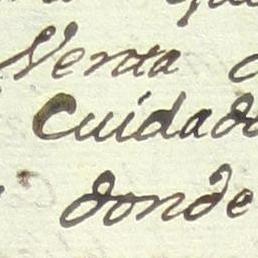 Venta
Cuidado
donde